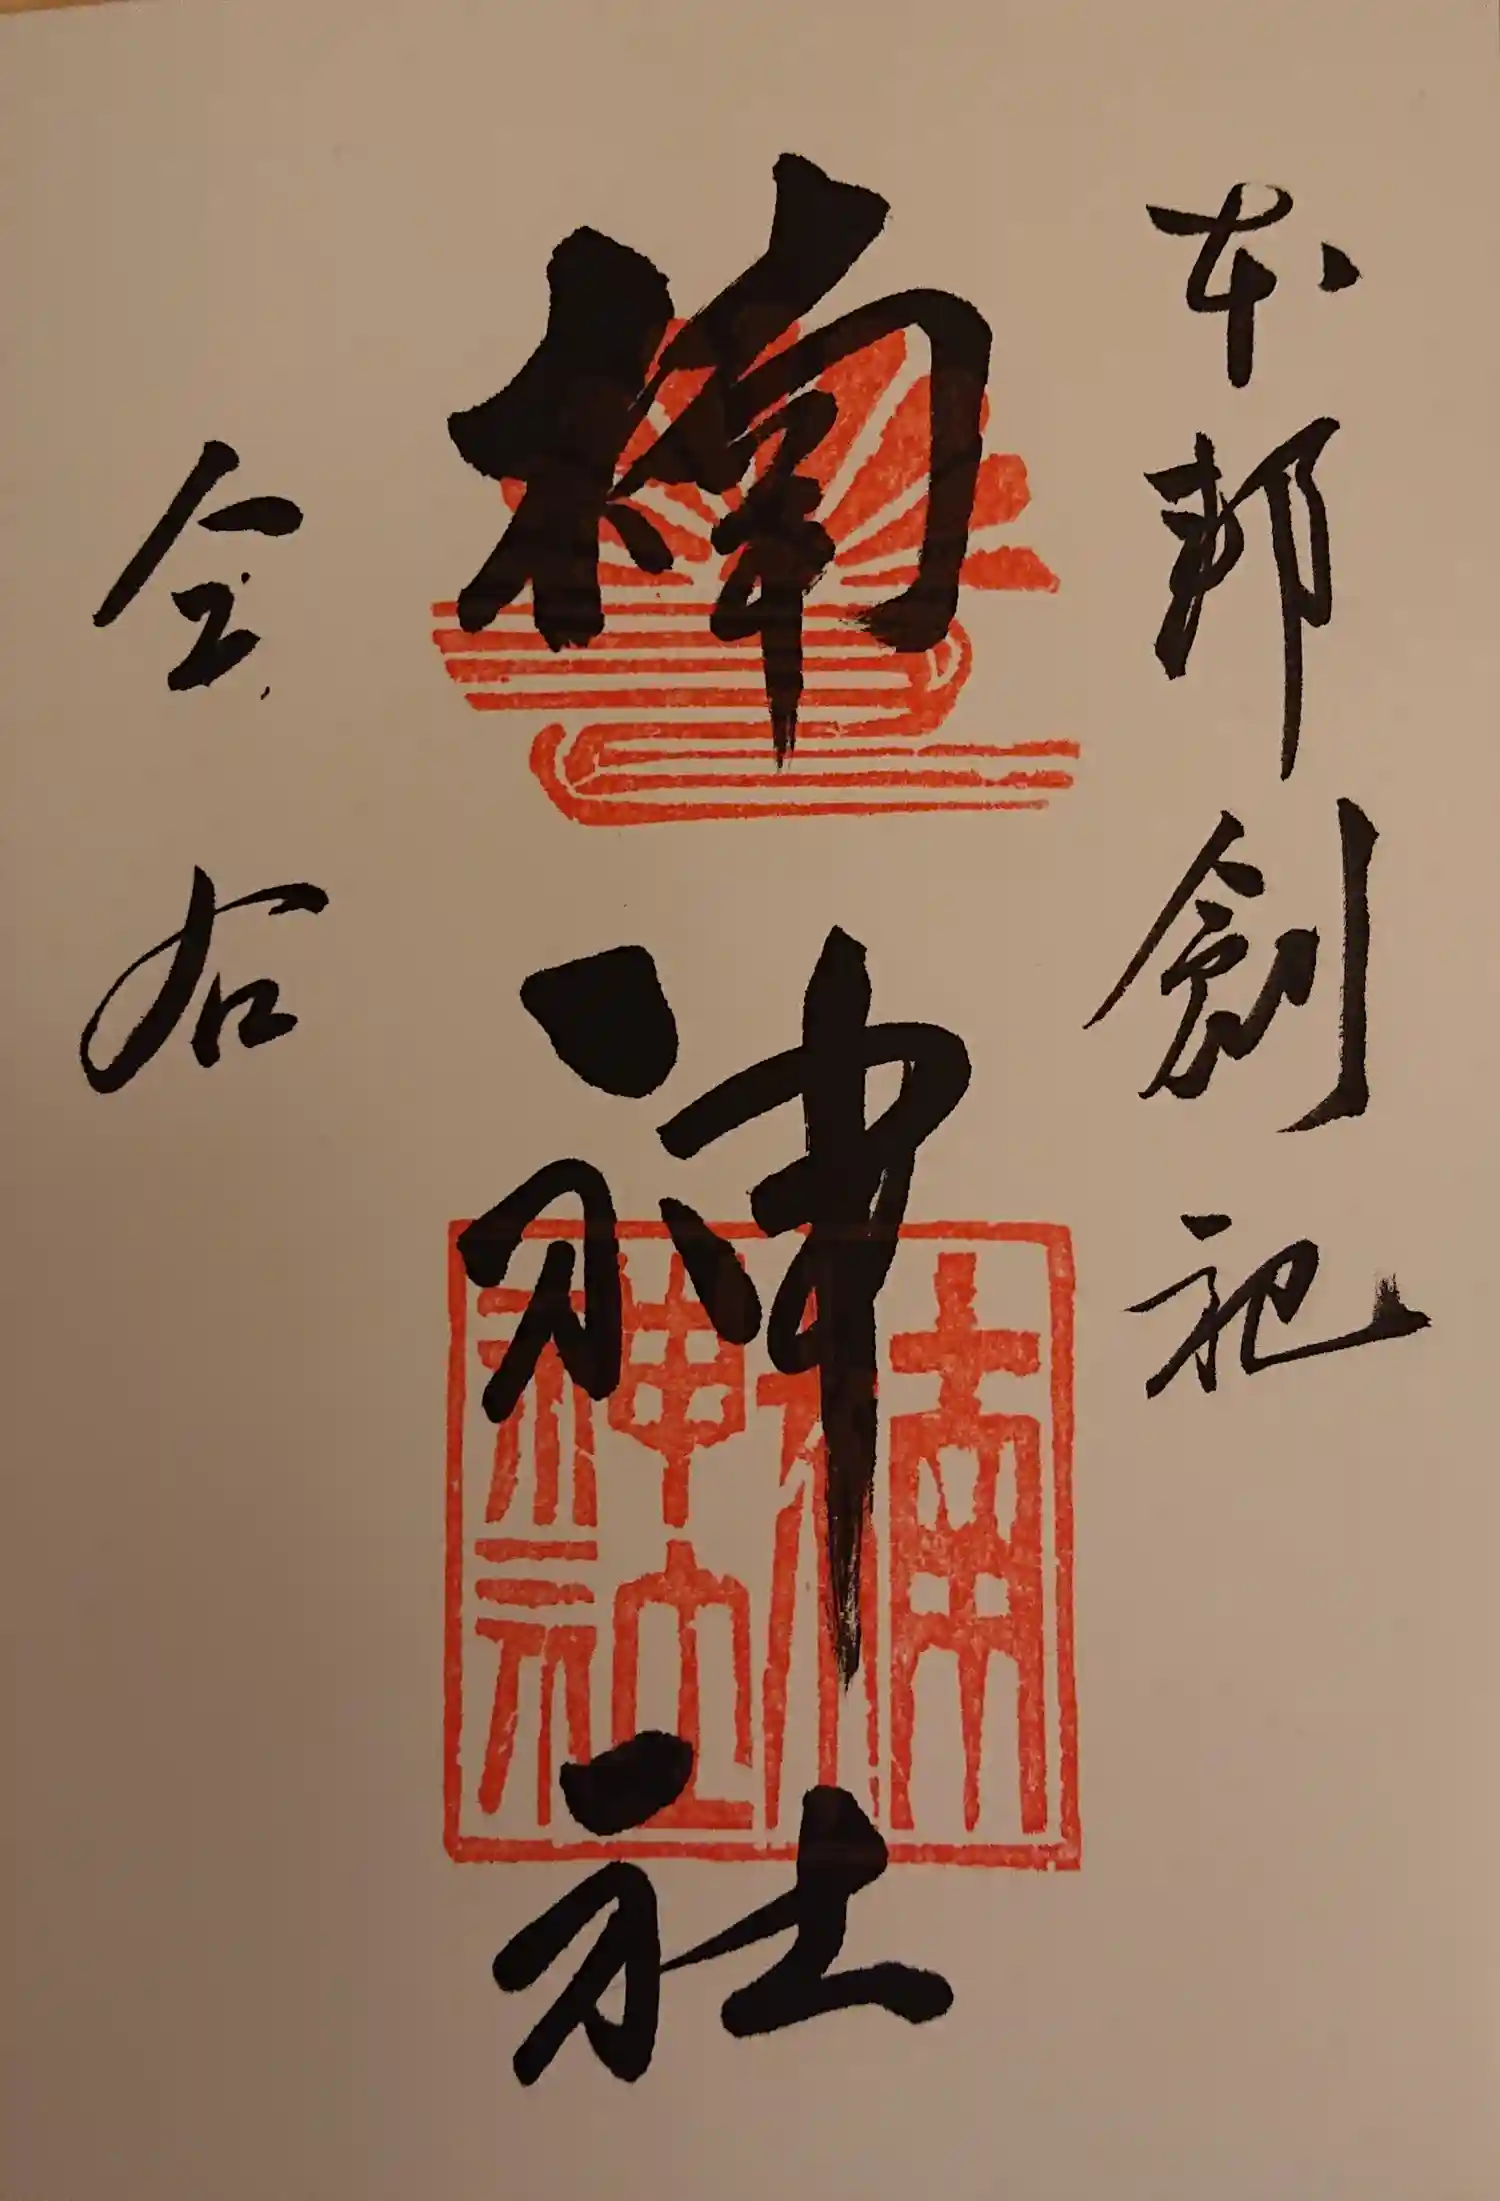 本邦創祀
楠神社
楠神社
会右